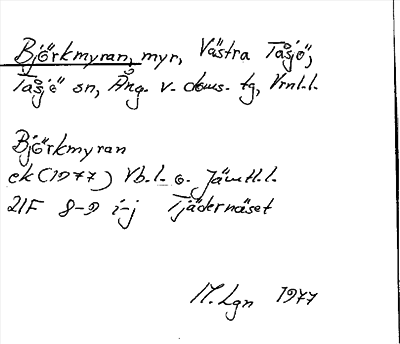 Björkmyran, myr, Västra Tåsjö,
Tåsjö sn, Ång. v. doms. tg, Vrnl.l.
Björkmyran
ek (1977) Vb.l. o. Jämtl.l.
21F 8-9 i-j Tjädernäset
M. Lgn 1977